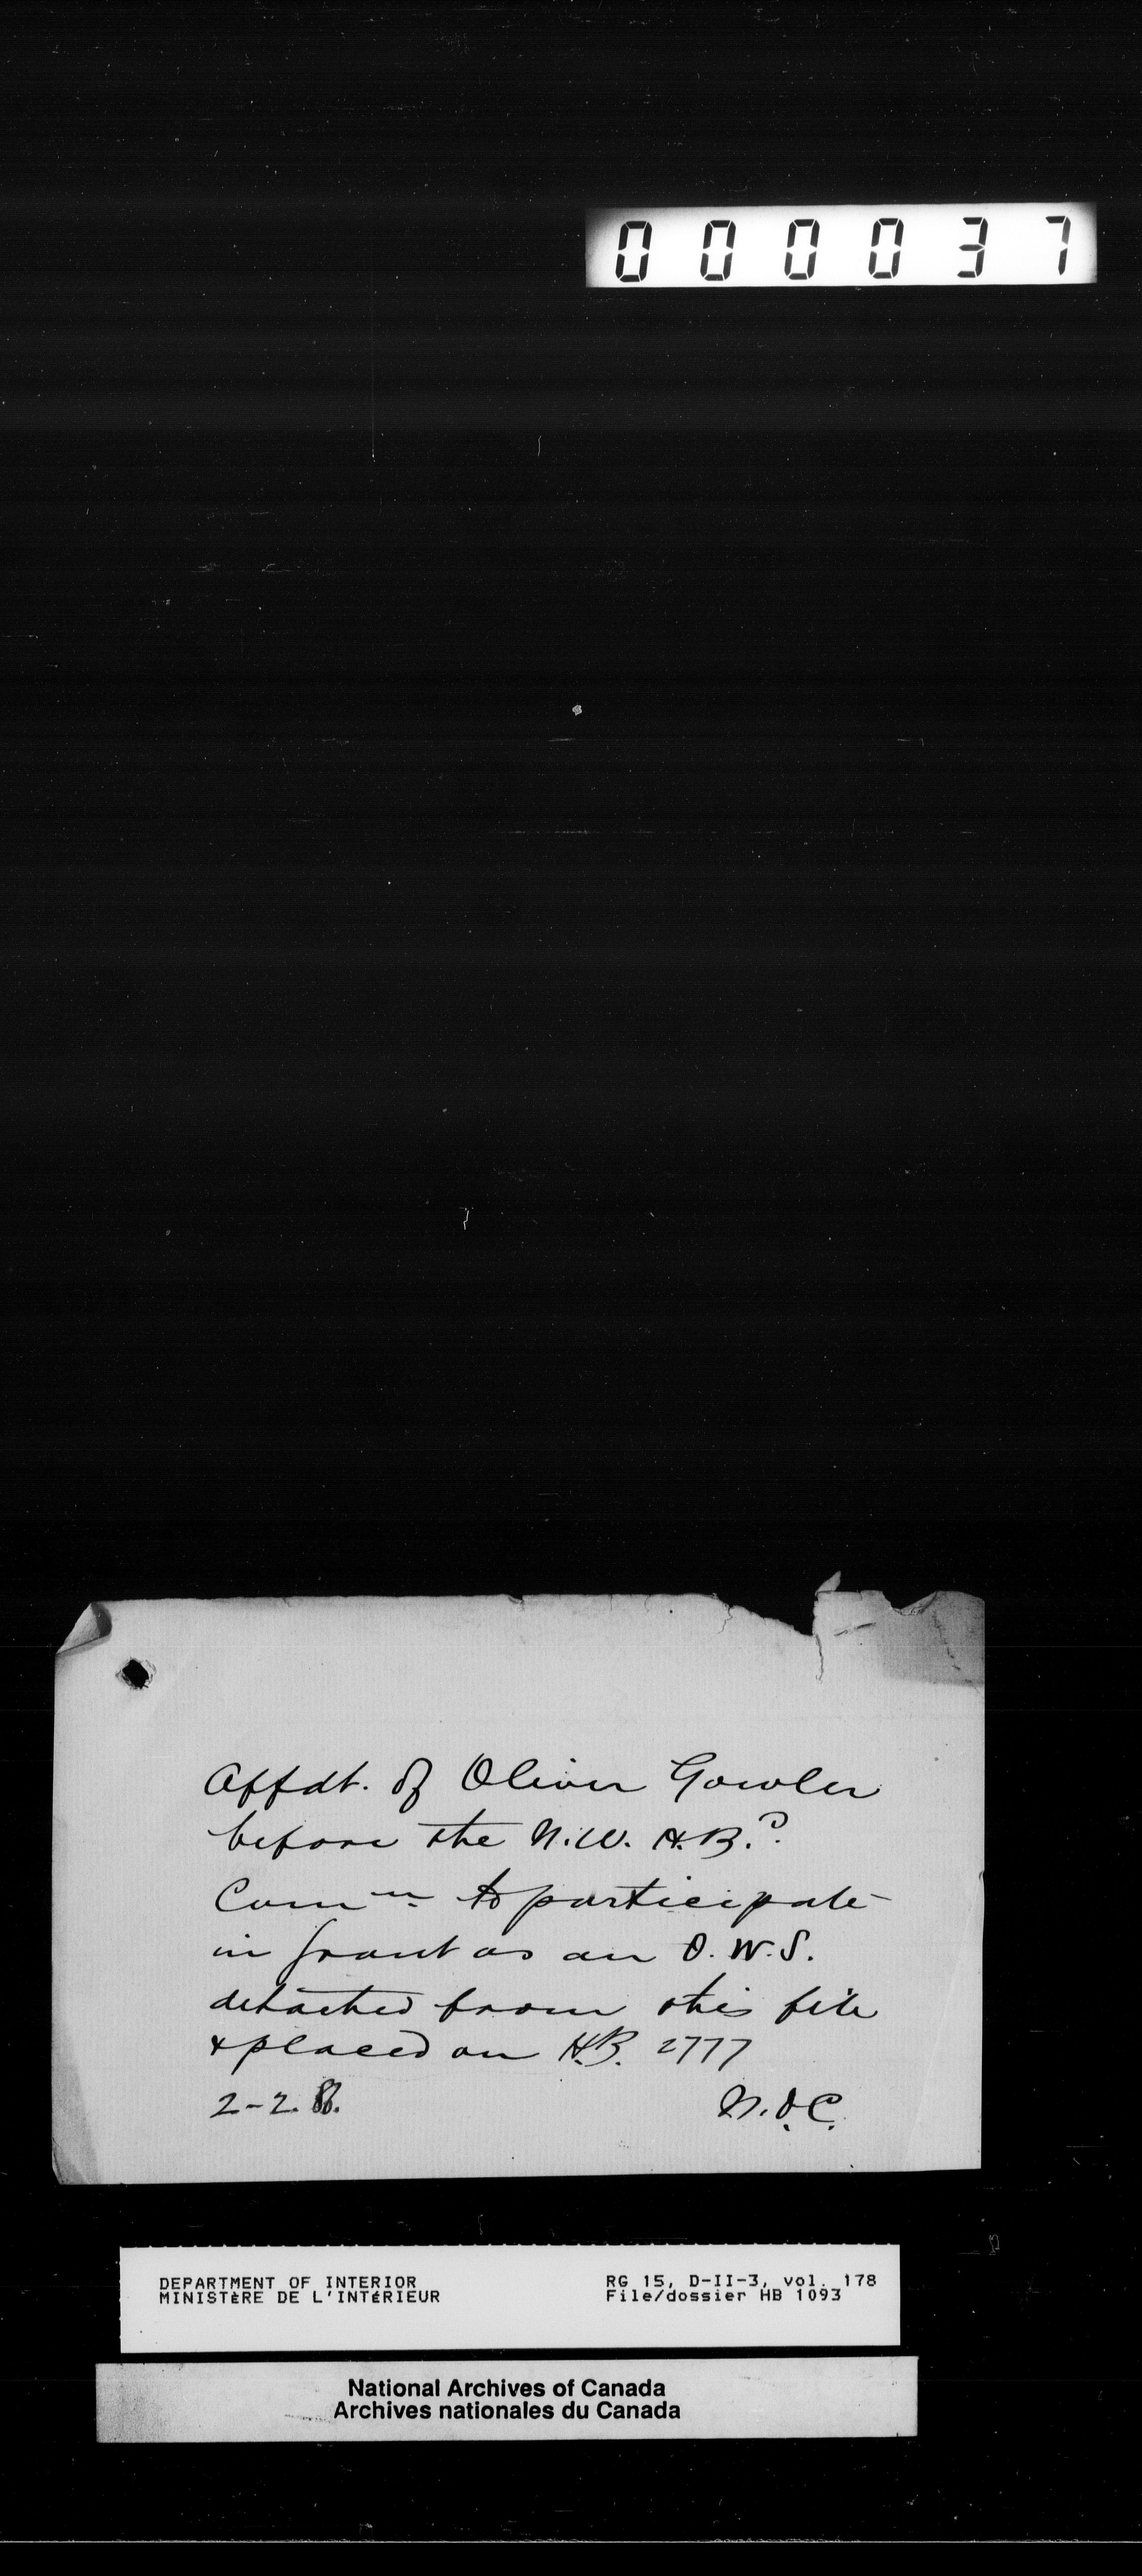 000037
Affdt. of Oliver Gowler
before the N.W. H.B.
Comn. to participate
in grant as an O.W.S.
detached from this file
& placed on H.B. 2777
2-2.
N.O.C.
DEPARTMENT OF INTERIOR
MINISTÈRE DE L'INTÉRIEUR
RG 15, D-II-3, vol. 178
File/dossier HB 1093
National Archives of Canada
Archives nationales du Canada